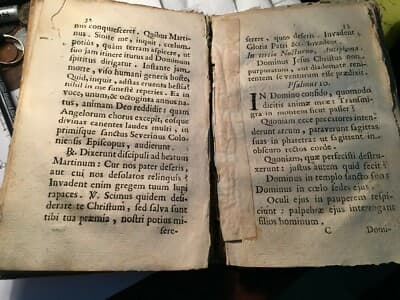 32
nus conquesceret. Quibus Marti-
nus. Sinite me, inquit, cœlum
potiùs, quàm terram aspicere, ut
suo jam itinere iturus ad Dominum
spiritus dirigatur. Instante jam
morte, viso humani generis hoste,
Quid, inquit, astas cruenta bestia?
nihil in me funeste reperies. Ea in
voce, unum, & octoginta annos na-
tus, animam Deo reddidit: quam
Angelorum chorus excepit, eumque
divinas canentem laudes multi, in
primisque sanctus Severinus Colo-
niensis Episcopus, audierunt.
℟. Dixerunt discipuli ad beatum
Martinum: Cur nos pater deseris,
aut cui nos desolatos relinquis?
Invadent enim gregem tuum lupi
rapaces. ℣. Scimus quidem desi-
derare te Christum, sed salva sunt
tibi tua præmia, nostri potius mi-
sere-
serere, quos deseris. Invadent.
Gloria Patri &c. Invadent.
In tertio Nocturno, Antiphona.
Dominus Jesus Christus non
purpuratum, aut diademate reni-
tentem se venturum esse prædixit.
Psalmus 10.
IN Domino confido, quomodo
dicitis animæ meæ: Transmi-
gra in montem sicut passer?
Quoniam ecce peccatores inten-
derunt arcum, paraverunt sagittas
suas in pharetra: ut sagittent in
obscuro rectos corde.
Quoniam, quæ perfecisti destru-
xerunt: justus autem quid fecit?
Dominus in templo sancto suo
Dominus in cœlo sedes ejus.
Oculi ejus in pauperem respi-
ciunt: palpebræ ejus interrogant
filios hominum.
C Domi-